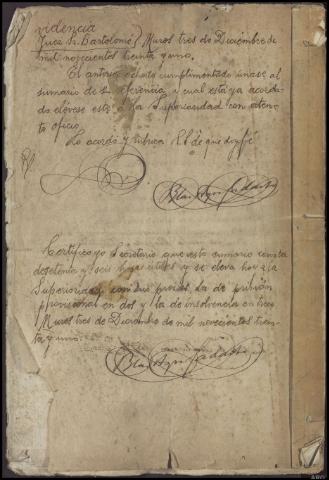 videncia
Juez Sr. Bartolomé } Muros tres de Diciembre de
mil novecientos treinta y uno.
El anterior exhorto cumplimentado únase al
sumario de su referencia, y cual está ya acorda-
do elévese este a la Superioridad con aten-
to oficio.
Lo acordó y rubrica S.S. de que doy fe.
Certifico yo Secretario que este sumario consta
de setenta y seis hojas útiles y se eleva hoy a la
Superioridad con dos piezas, la de prisión
provisional en dos y la de insolvencia en tres
Muros tres de Diciembre de mil novecientos trein-
ta y uno.